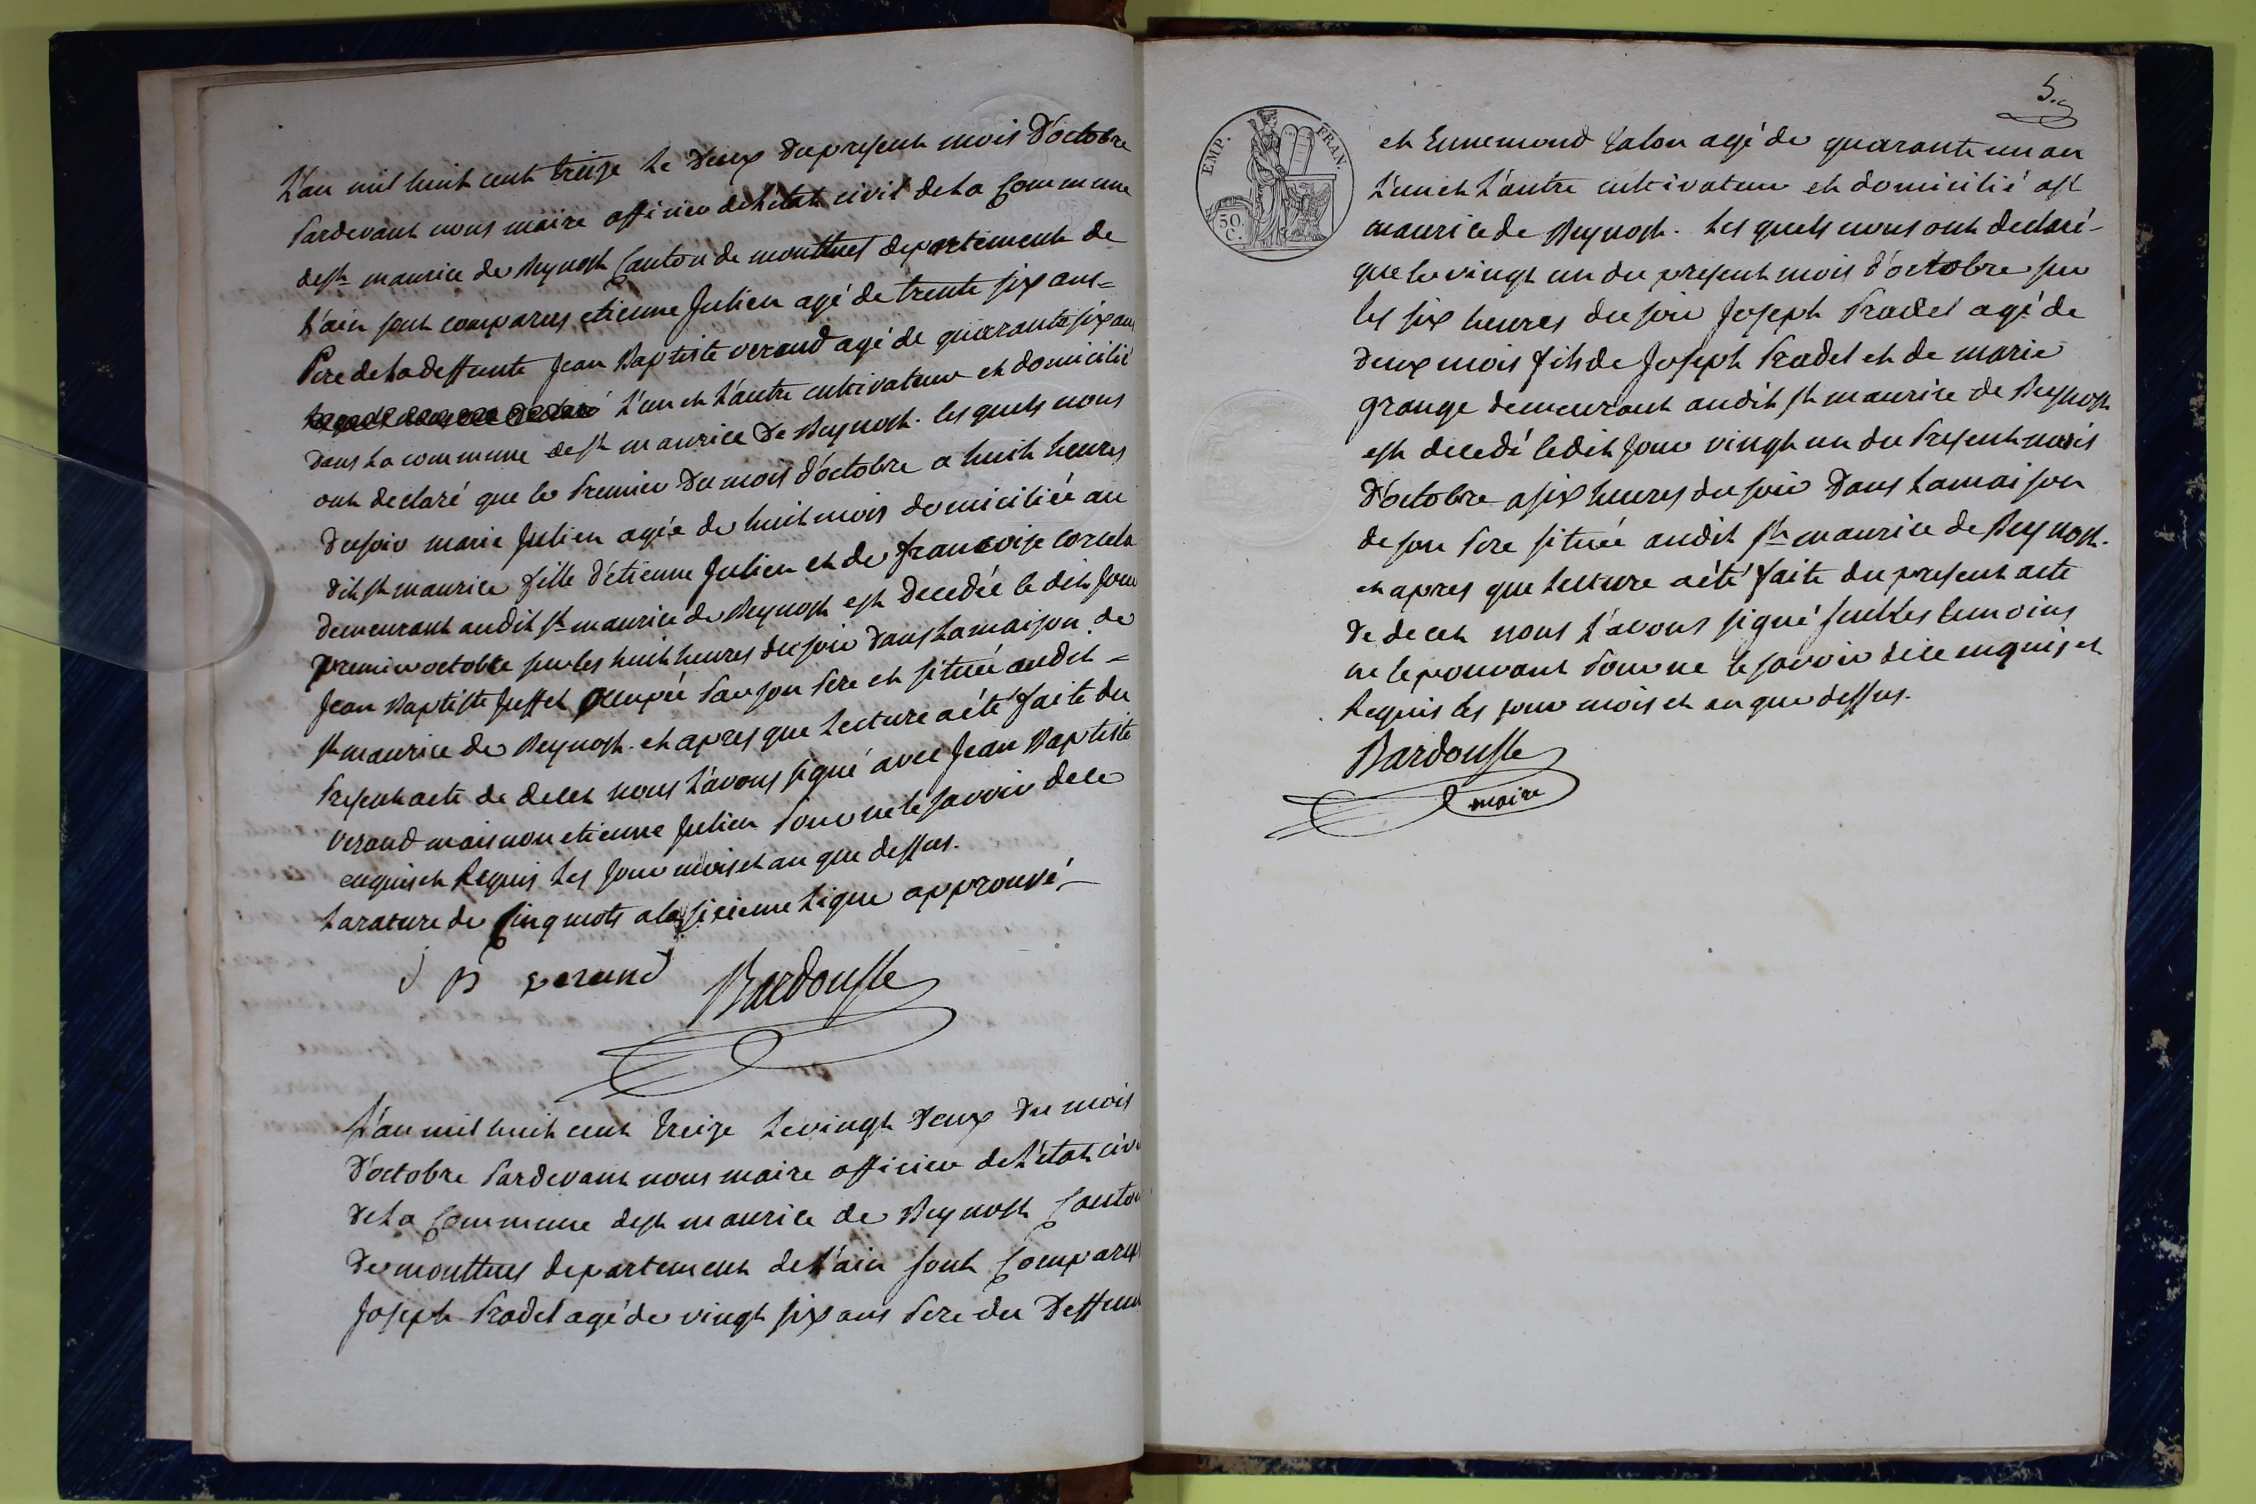 L'an mil huit cent treize le deux du present mois d'octobre
Pardevant nous maire officier de l'état civil de la Commune
de st maurice de Beynost Canton de montluel departement de
l'ain sont comparus etienne Julien agé de trente six ans =
Pere de la deffunte Jean Baptiste verand agé de quarante six ans
L'un et L'autre cultivateur et domicilié
dans la commune de st maurice de Beynost. les quels nous
ont declaré que le Premier du mois d'octobre a huit heures
du soir marie Julien agée de huit mois domiciliée au
dit st maurice fille d'étienne Julien et de francoise
demeurant audit st maurice de Beynost est decedée le dit Jour
premier octobre sur les huit heures du soir dans la maison de
Jean Baptiste Juffet occupée Par son Pere et située audit =
st maurice de Beynost. et apres que Lecture a été faite du
Present acte de deces nous L'avons signé avec Jean Baptiste
verand mais non etienne Julien Pour ne le savoir de ce
enquis et Requis Les Jour mois et an que dessus.
La rature de Cinq mots a la sixieme Ligne approuvé
J B verand Bardousse
L'an mil huit cent treize Le vingt deux du mois
d'octobre Pardevant nous maire officier de L'état civi
de La Commune de st maurice de Beynost Canton
de montluel departement de L'ain sont Comparus
Joseph Pradel agé de vingt six ans Pere du deffun
5.
EMP. FRAN.
50
C.
et Ennemond Talon agé de quarante un an
L'un et L'autre cultivateur et domicilié a st
maurice de Beynost. Les quels nous ont declaré -
que le vingt un du present mois d'octobre sur
les six heures du soir Joseph Pradel agé de
deux mois fils de Joseph Pradel et de marie
grange demeurant audit st maurice de Beynost
est decedé le dit Jour vingt un du Present mois
d'octobre a six heures du soir dans La maison
de son Pere située audit st maurice de Beynost.
et apres que Lecture a été faite du present acte
de deces nous L'avons signé seul les temoins
ne le pouvant Pour ne le savoir de ce enquis et
Requis les jour mois et an que dessus.
Bardousse
maire